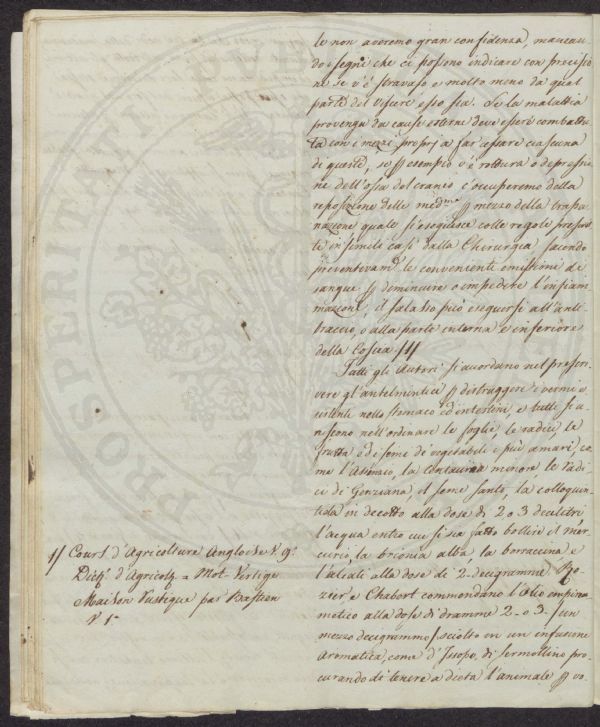 le non averemo gran confidenza, mancan-
do i segni che ci possono indicare con precisio
ne se v'è stravaso e molto meno da qual
parte del viscere esso sia. Se la malattia
provenga da cause esterne deve essere combattu
ta con i mezzi proprj a far cessare ciascuna
di queste, se p esempio v'è rottura o depressio
ne dell'ossa del cranio c'occuperemo della
reposizione delle med.me p mezzo della trapa
nazione quale si eseguisce colle regole prescrit
te in simili casi dalla Chirurgia facendo
preventivam.e le convenienti emissioni di
sangue p diminuire o impedire l'infiam
mazione, il salasso può eseguirsi all'anti
braccio, o alla parte interna e inferiore
della Coscia
Tutti gli Autori si accordano nel prescri-
vere gl'antelmintici p distruggere i vermi e
sistenti nello stomaco ed intestini, e tutti si u
niscono nell'ordinare le foglie, le radici, le
frutta, ed i semi di vegetabili i più amari, co
me l'Assenzio, la Centaurea minore le radi
ci di Genziana il seme santo, la colloquin
tida in decotto alla dose di 2 o 3 decilitri
l'acqua entro cui si sia fatto bollire il mer
curio, la brionia alba, la borraccina e
l'alcali alla dose di 2 decigramme. Ro
zier e Chabert commendano l'Olio empireu
matico alla dose di dramme 2 o 3 in un
mezzo decigrammo sciolto in un infusione
aromatica, come d'Issopo, di sermollino pro-
curando di tenere a dieta l'animale p vo
1/ Cours d'Agricolture Angloise V. 9.
Dict. d'Agricolt = Mot. Vertige
Maison Rustique par Bastien
V. 1.
PROSPERITATI